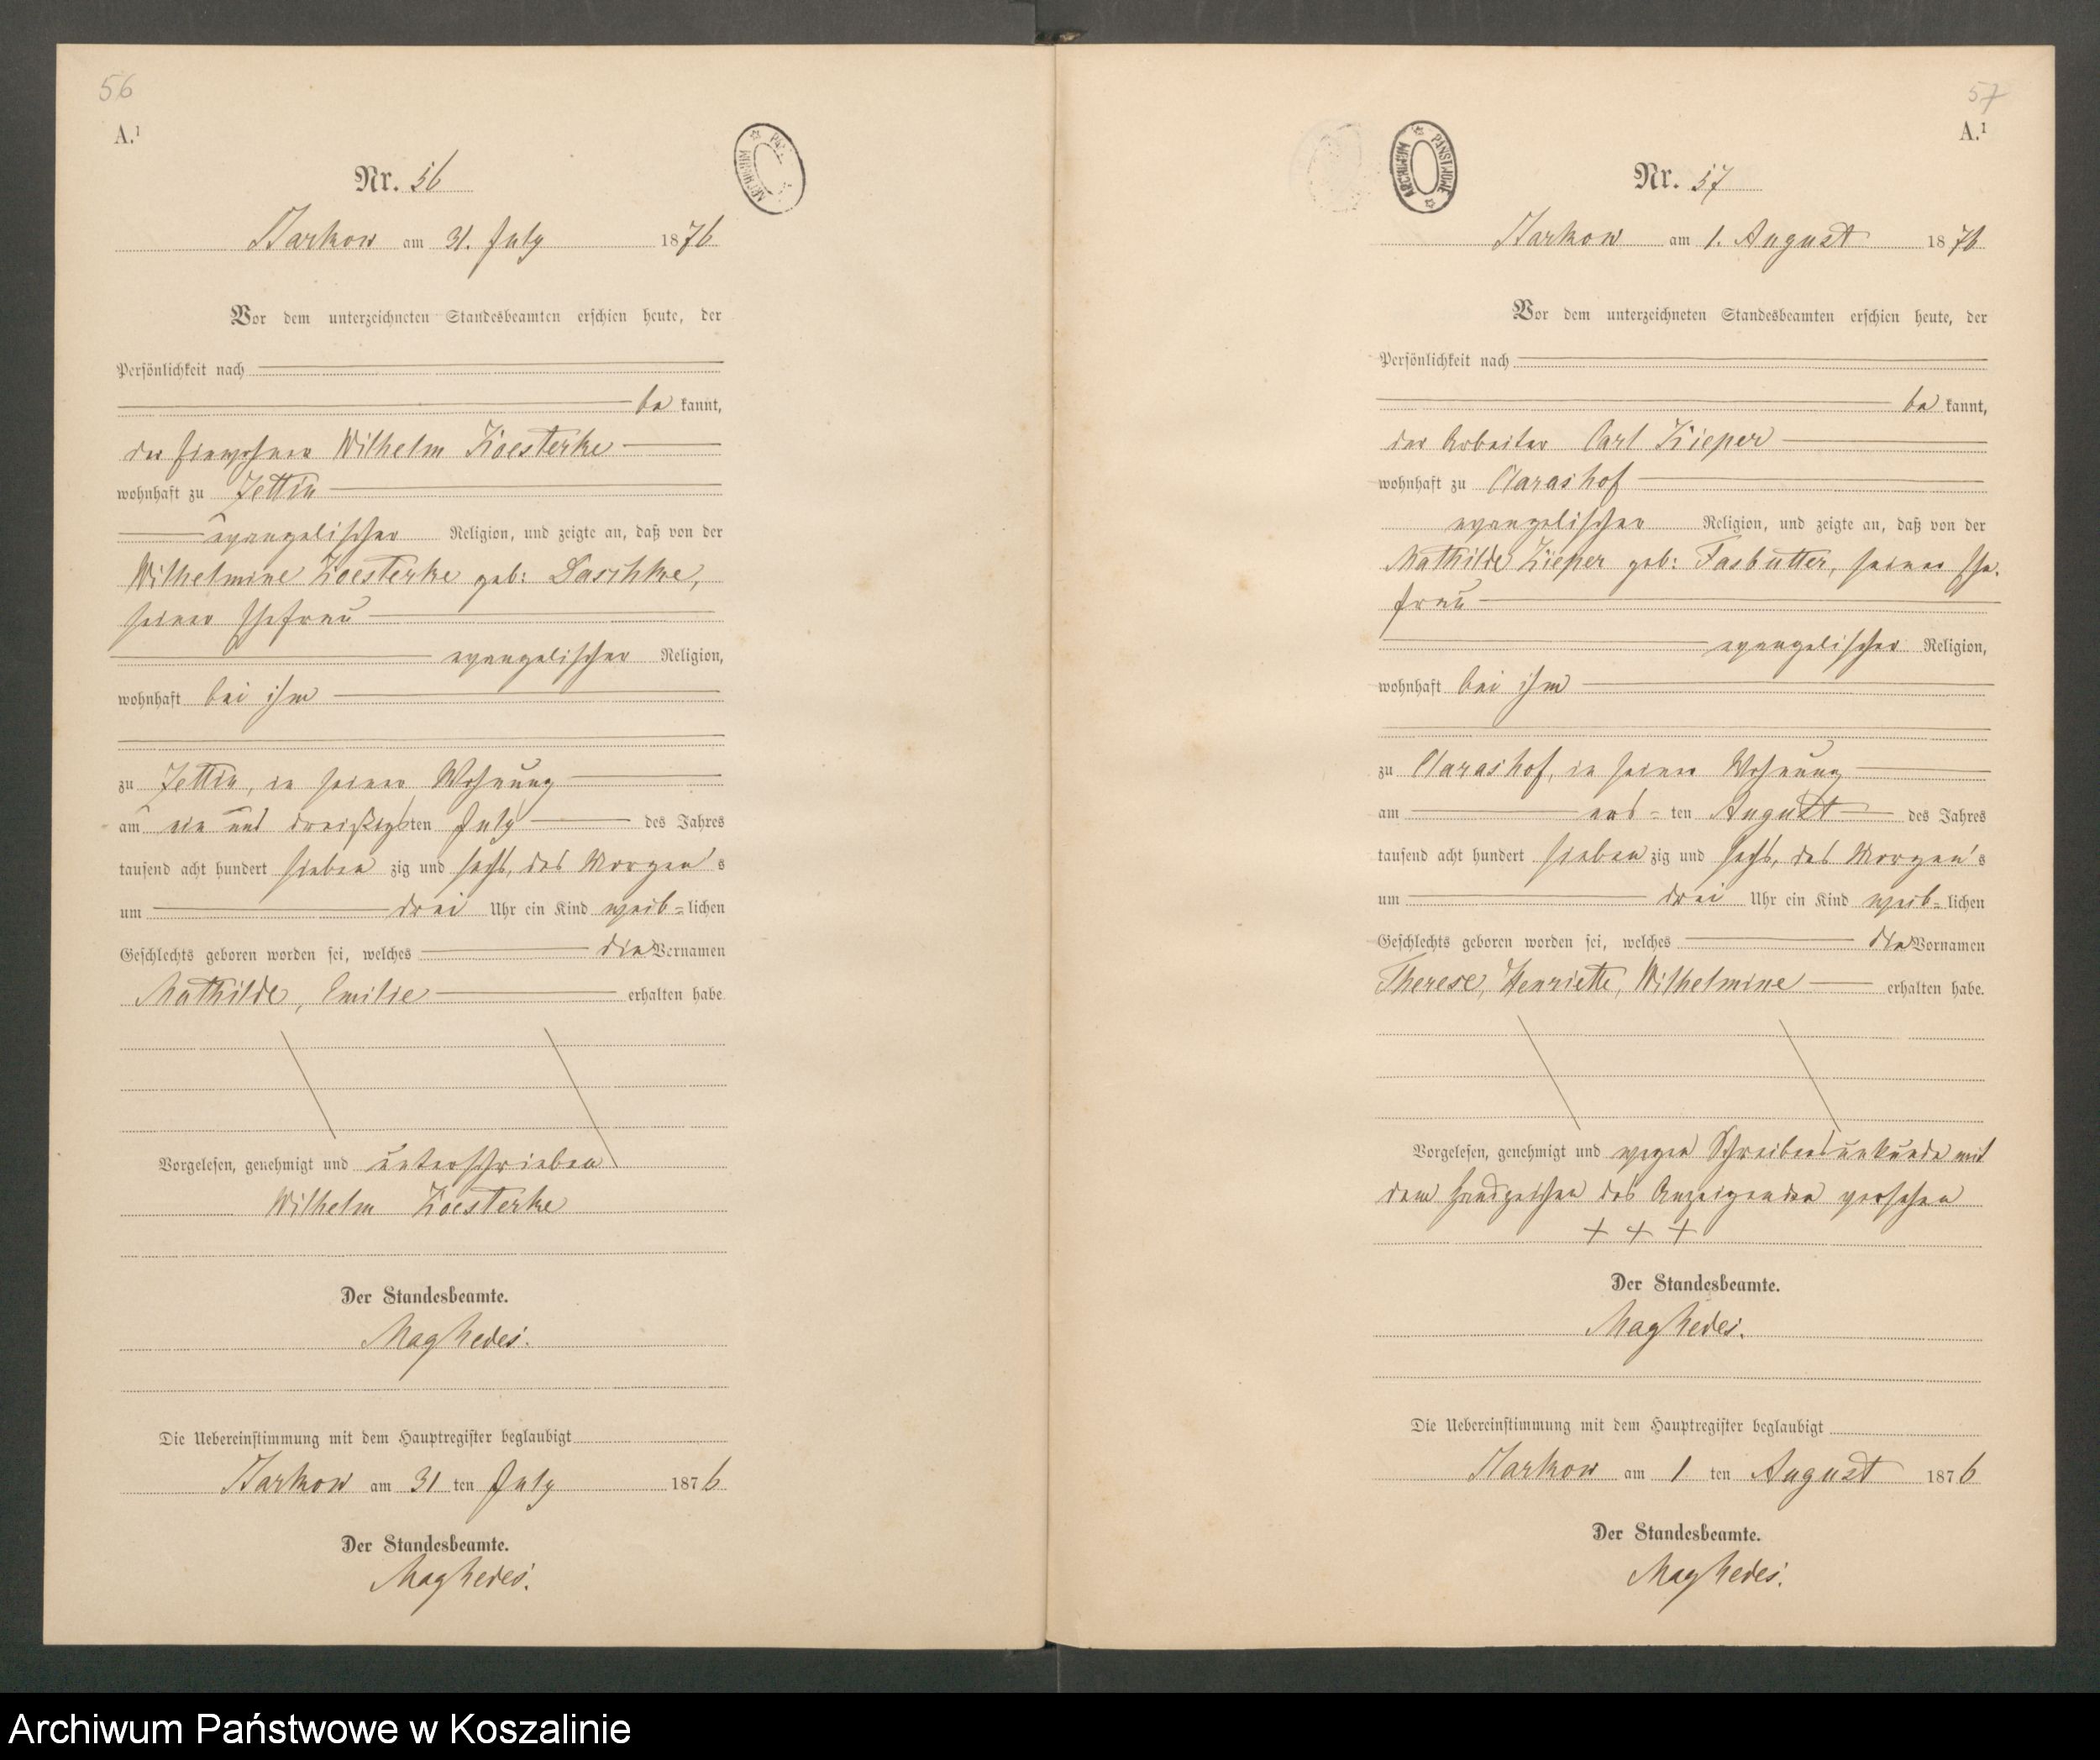 56
A.¹
Nr. 56
Starkow am 31. July 1876
Vor dem unterzeichneten Standesbeamten erschien heute, der
Persönlichkeit nach
be kannt,
der Einwohner Wilhelm Koesterke
wohnhaft zu Zettin
evangelischer Religion, und zeigte an, daß von der
Wilhelmine Koesterke geb: Daschke,
seiner Ehefrau
evangelischer Religion,
wohnhaft bei ihm
zu Zettin, in seiner Wohnung
am ein und dreißigsten July des Jahres
tausend acht hundert sieben zig und sechs, des Morgen's
um drei Uhr ein Kind weib=lichen
Geschlechts geboren worden sei, welches die Vornamen
Mathilde, Emilie erhalten habe
Vorgelesen, genehmigt und unterschrieben
Wilhelm Koesterke
Der Standesbeamte.
Die Uebereinstimmung mit dem Hauptregister beglaubigt
Starkow am 31 ten July 1876
Der Standesbeamte.
ARCHIWUM
57
A.¹
Nr. 57
Starkow am 1. August 1876
Vor dem unterzeichneten Standesbeamten erschien heute, der
Persönlichkeit nach
be kannt,
der Arbeiter Carl Kieper
wohnhaft zu Clarashof
evangelischer Religion, und zeigte an, daß von der
Mathilde Kieper geb: Fasbutter, seiner Ehe-
frau
evangelischer Religion,
wohnhaft bei ihm
zu Clarashof, in seiner Wohnung
am ers=ten August des Jahres
tausend acht hundert sieben zig und sechs, des Morgen's
um drei Uhr ein Kind weib=lichen
Geschlechts geboren worden sei, welches die Vornamen
Therese, Henriette, Wilhelmine erhalten habe.
Vorgelesen, genehmigt und wegen Schreibensunkunde mit
dem Handzeichen des Anzeigenden versehen
+ + +
Der Standesbeamte.
Die Uebereinstimmung mit dem Hauptregister beglaubigt
Starkow am 1 ten August 1876
Der Standesbeamte.
ARCHIWUM PAŃSTWOWE
Archiwum Państwowe w Koszalinie